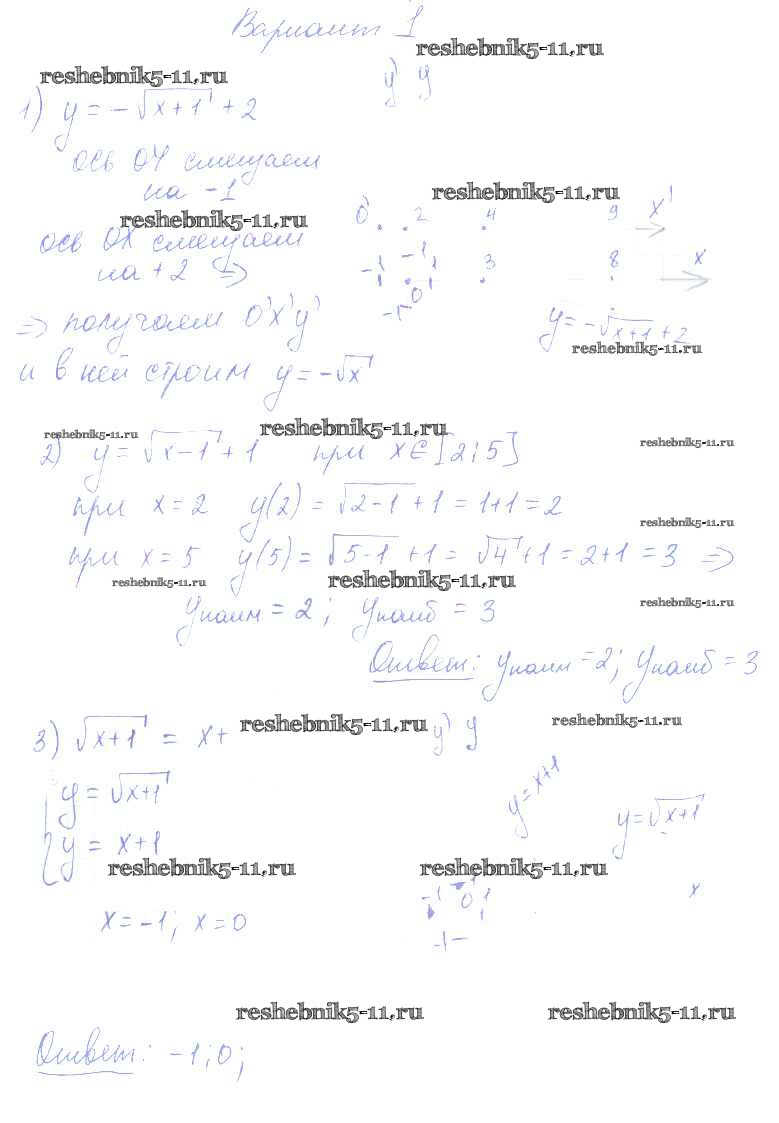 Вариант 1
reshebnik5-11.ru
reshebnik5-11.ru
y' y
1) y = -√(x+1) + 2
ось OY смещаем
на -1
reshebnik5-11.ru
reshebnik5-11.ru
0' 2 4 9 x'
ось OX смещаем
на +2 ⇒
-1 -1 1 3 8 x
0
-1
⇒ получаем O'x'y'
y = -√(x+1) + 2
reshebnik5-11.ru
и в ней строим y = -√x
reshebnik5-11.ru
reshebnik5-11.ru
reshebnik5-11.ru
2) y = √(x-1) + 1 при x ∈ [2; 5]
при x = 2 y(2) = √(2-1) + 1 = 1+1 = 2
reshebnik5-11.ru
при x = 5 y(5) = √(5-1) + 1 = √4 + 1 = 2+1 = 3 ⇒
reshebnik5-11.ru
reshebnik5-11.ru
reshebnik5-11.ru
yнаим = 2; yнаиб = 3
Ответ: yнаим = 2; yнаиб = 3
reshebnik5-11.ru
reshebnik5-11.ru
3) √(x+1) = x+
y' y
{ y = √(x+1)
y = x+1
y = x+1
y = √(x+1)
reshebnik5-11.ru
reshebnik5-11.ru
-1 1 0 1 x
-1
x = -1; x = 0
reshebnik5-11.ru
reshebnik5-11.ru
Ответ: -1; 0;